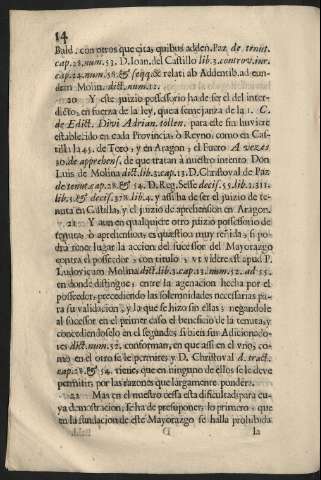 14
Bald. con otros que cita, quibus adden. Paz de tenut.
cap. 28. num. 53. D. Ioan. del Castillo lib. 3. controv. iur.
cap. 24. num. 58. & seqq. & relati ab Addentib. ad eun-
dem Molin. dict. num. 12.
20 Y este juizio possessorio ha de ser el del inter-
dicto, en fuerza de ley, que à semejanza de la l.
de Edict. Divi Adrian. tollen. para este fin huviere
establecido en cada Provincia, ò Reyno, como en Cas-
tilla la 45. de Toro, y en Aragon, el Fuero A vezes
30. de apprehens. de que tratan à nuestro intento Don
Luis de Molina dict. lib. 3. cap. 13. D. Christoval de Paz
de tenut. cap. 28. & 54. D. Reg. Sesse decis. 55. lib. 1. 311.
lib. 3. & decis. 378. lib. 4. y assi ha de ser el juizio de te-
nuta en Castilla, y el juizio de aprehension en Aragon.
21 Y aun en qualquiere otro juizio possessorio de
tenuta, ò aprehension, es question muy reñida, si po-
drà tener lugar la accion del sucessor del Mayorazgo
contra el posseedor, con titulo, vt videre est apud P.
Ludovicum Molina dict. lib. 3. cap. 13. num. 52. ad 55.
en donde distingue, entre la agenacion hecha por el
posseedor, precediendo las solemnidades necessarias pa-
ra su validacion, y la que se hizo sin ellas; negandole
al sucessor en el primer caso el beneficio de la tenuta, y
concediendoselo en el segundo, si bien sus Adicionado-
res dict. num. 52. conforman, en que assi en el vno, co-
mo en el otro se le permite; y D. Christoval d. tract.
cap. 28. & 54. tiene, que en ninguno de ellos se le deve
permitir, por las razones que largamente pondera.
22 Mas en nuestro cessa esta dificultad, para cu-
ya demostracion, se ha de presuponer, lo primero, que
en la fundacion de este Mayorazgo se halla prohibida
D la